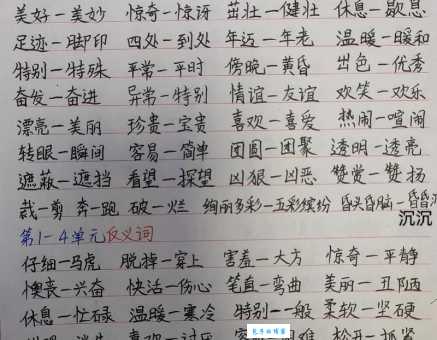 美好—美妙 惊奇—惊讶 茁壮—健壮 休息—歇息
足迹—脚印 四处—到处 年迈—年老 温暖—暖和
特别—特殊 平常—平时 傍晚—黄昏 出色—优秀
奋发—奋进 异常—特别 情谊—友谊 欢笑—欢乐
漂亮—美丽 珍贵—宝贵 喜欢—喜爱 热闹—喧闹
转眼—瞬间 容易—简单 团圆—团聚 透明—透亮
遮蔽—遮挡 看望—探望 凶狠—凶恶 赞赏—赞扬
裁—剪 奔—跑 破—烂 绚丽多彩—五彩缤纷 昏头昏脑—昏昏
沉沉
第1-4单元反义词
仔细—马虎 脱掉—穿上 害羞—大方 惊奇—平静
懊丧—兴奋 快活—伤心 笔直—弯曲 美丽—丑陋
休息—忙碌 温暖—寒冷 特别—一般 柔软—坚硬
喜欢—讨厌 松开—抓紧